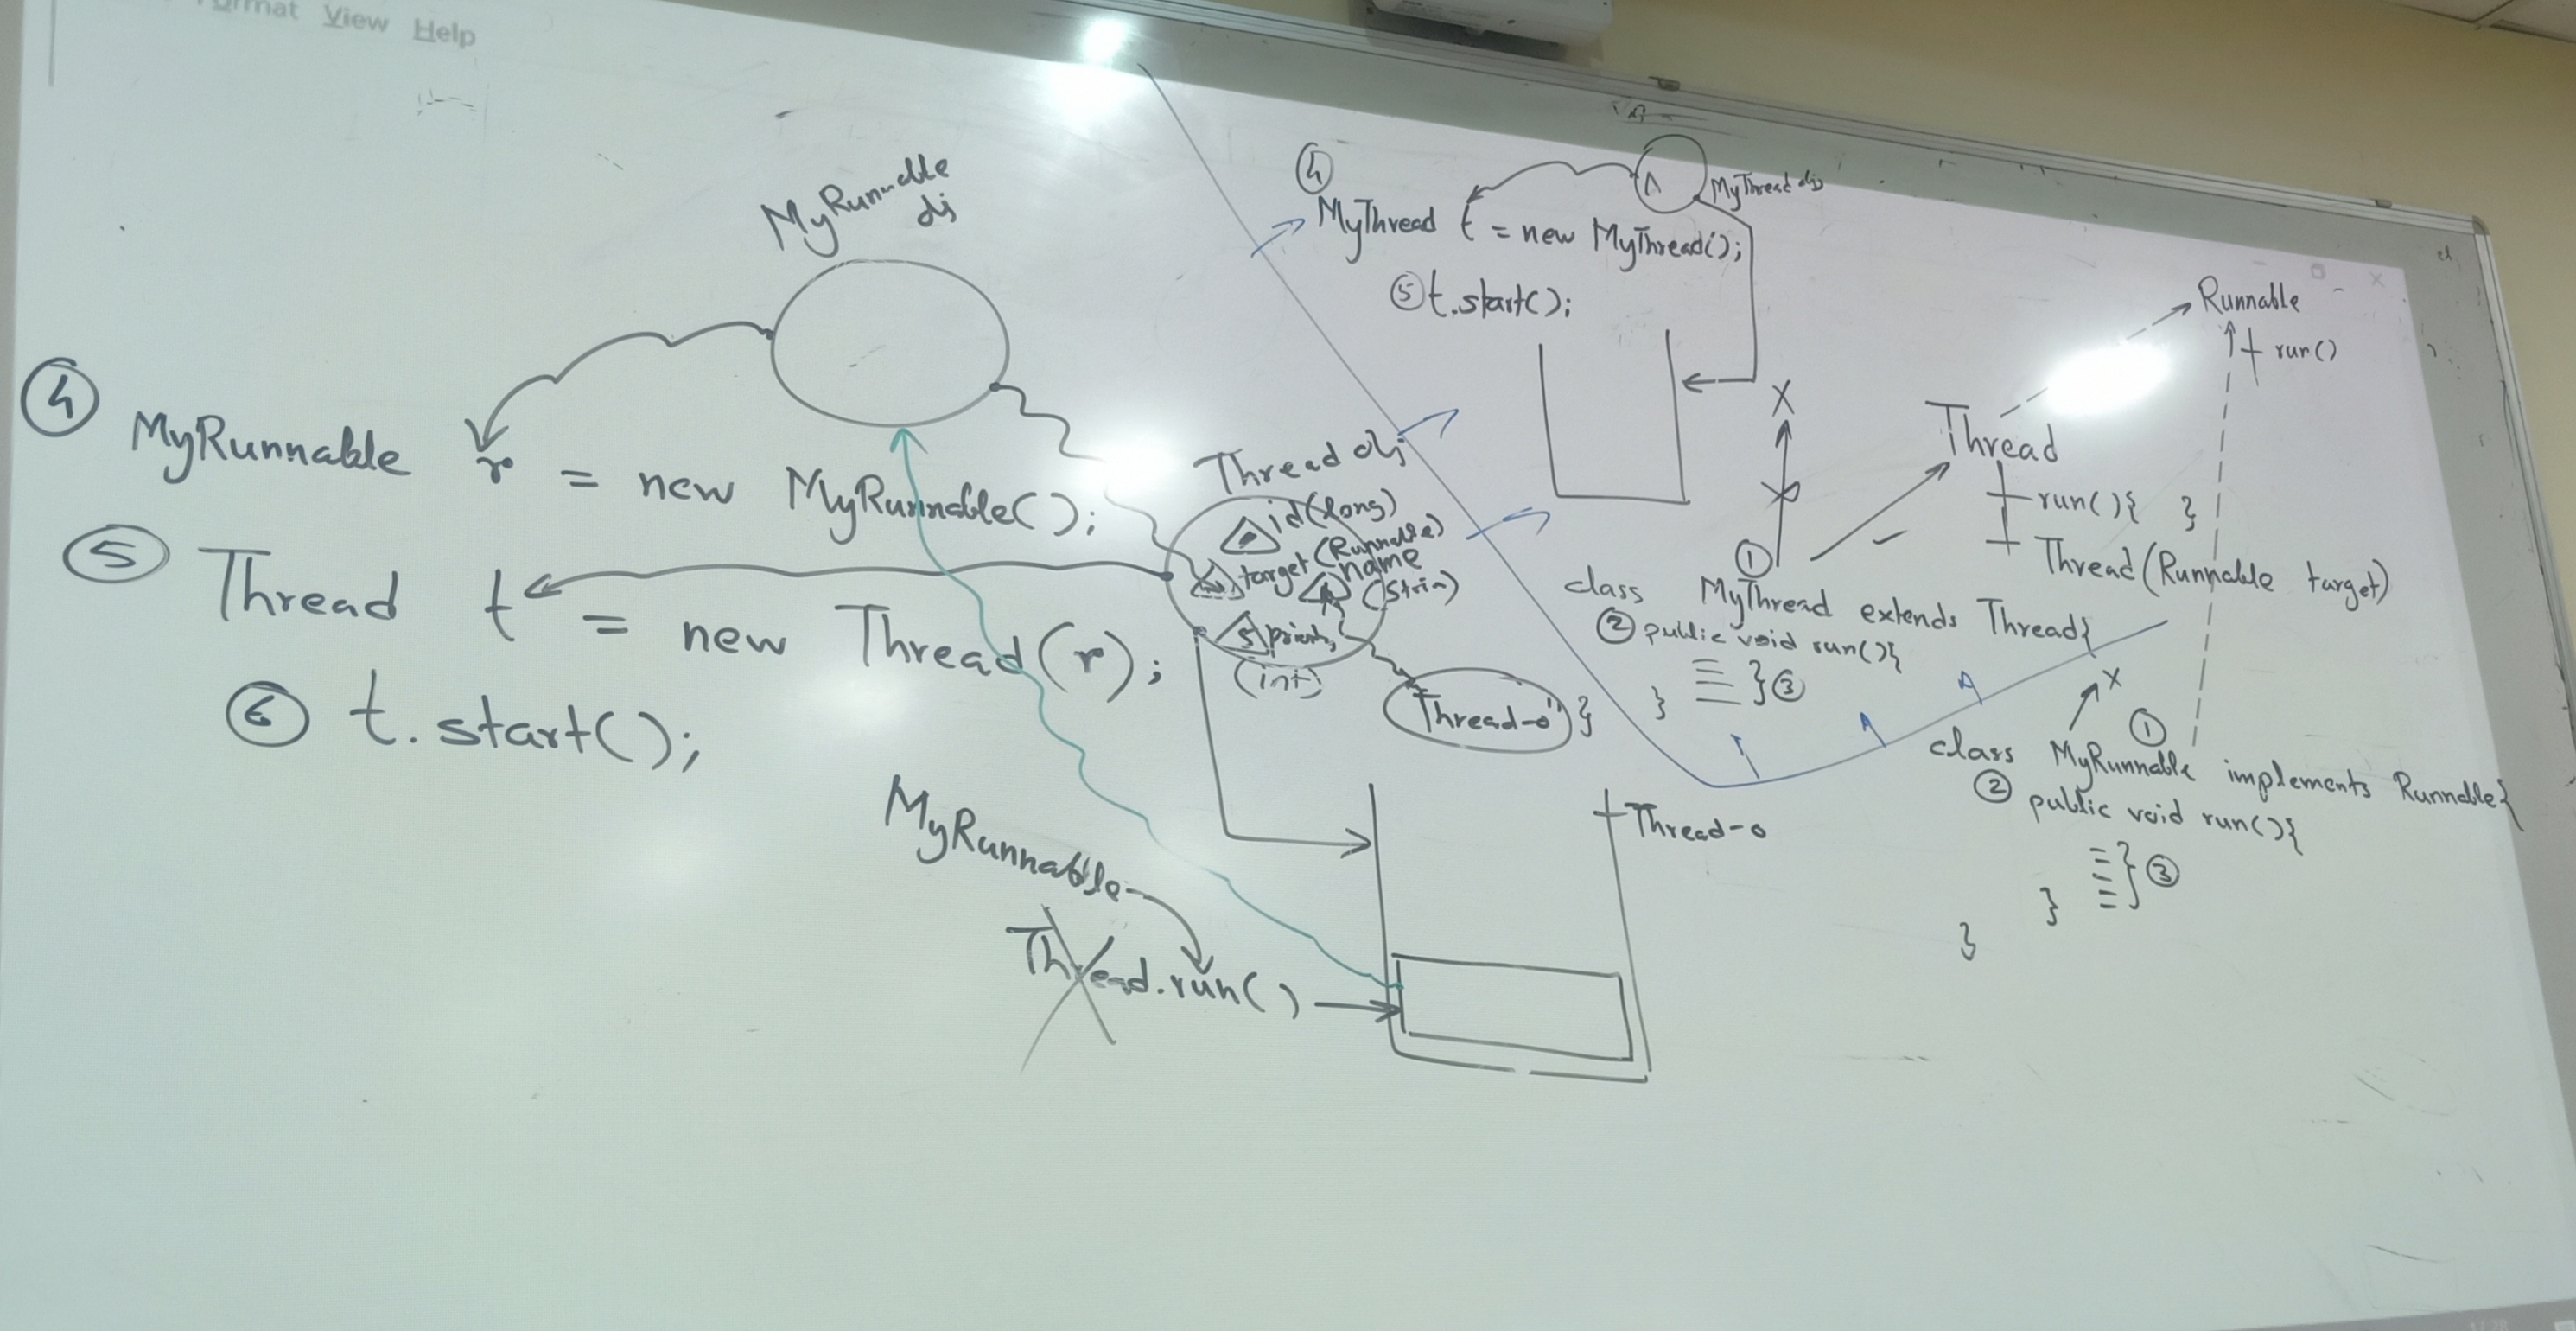 View Help
MyRunnable
obj
④
MyRunnable r = new MyRunnable();
⑤
Thread t = new Thread(r);
⑥ t.start();
Thread obj
id(long)
target (Runnable)
name
(Strin)
5 priority
(int)
"Thread-0"
MyRunnable
Thread.run()
Thread-0
④
MyThread obj
MyThread t = new MyThread();
⑤ t.start();
X
Runnable
run()
Thread
run(){ }
Thread(Runnable target)
①
class MyThread extends Thread{
② public void run(){
} ③
}
}
X
①
class MyRunnable implements Runnable{
② public void run(){
} ③
}
}